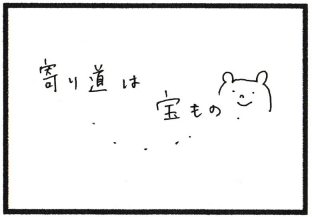 寄り道は
宝もの